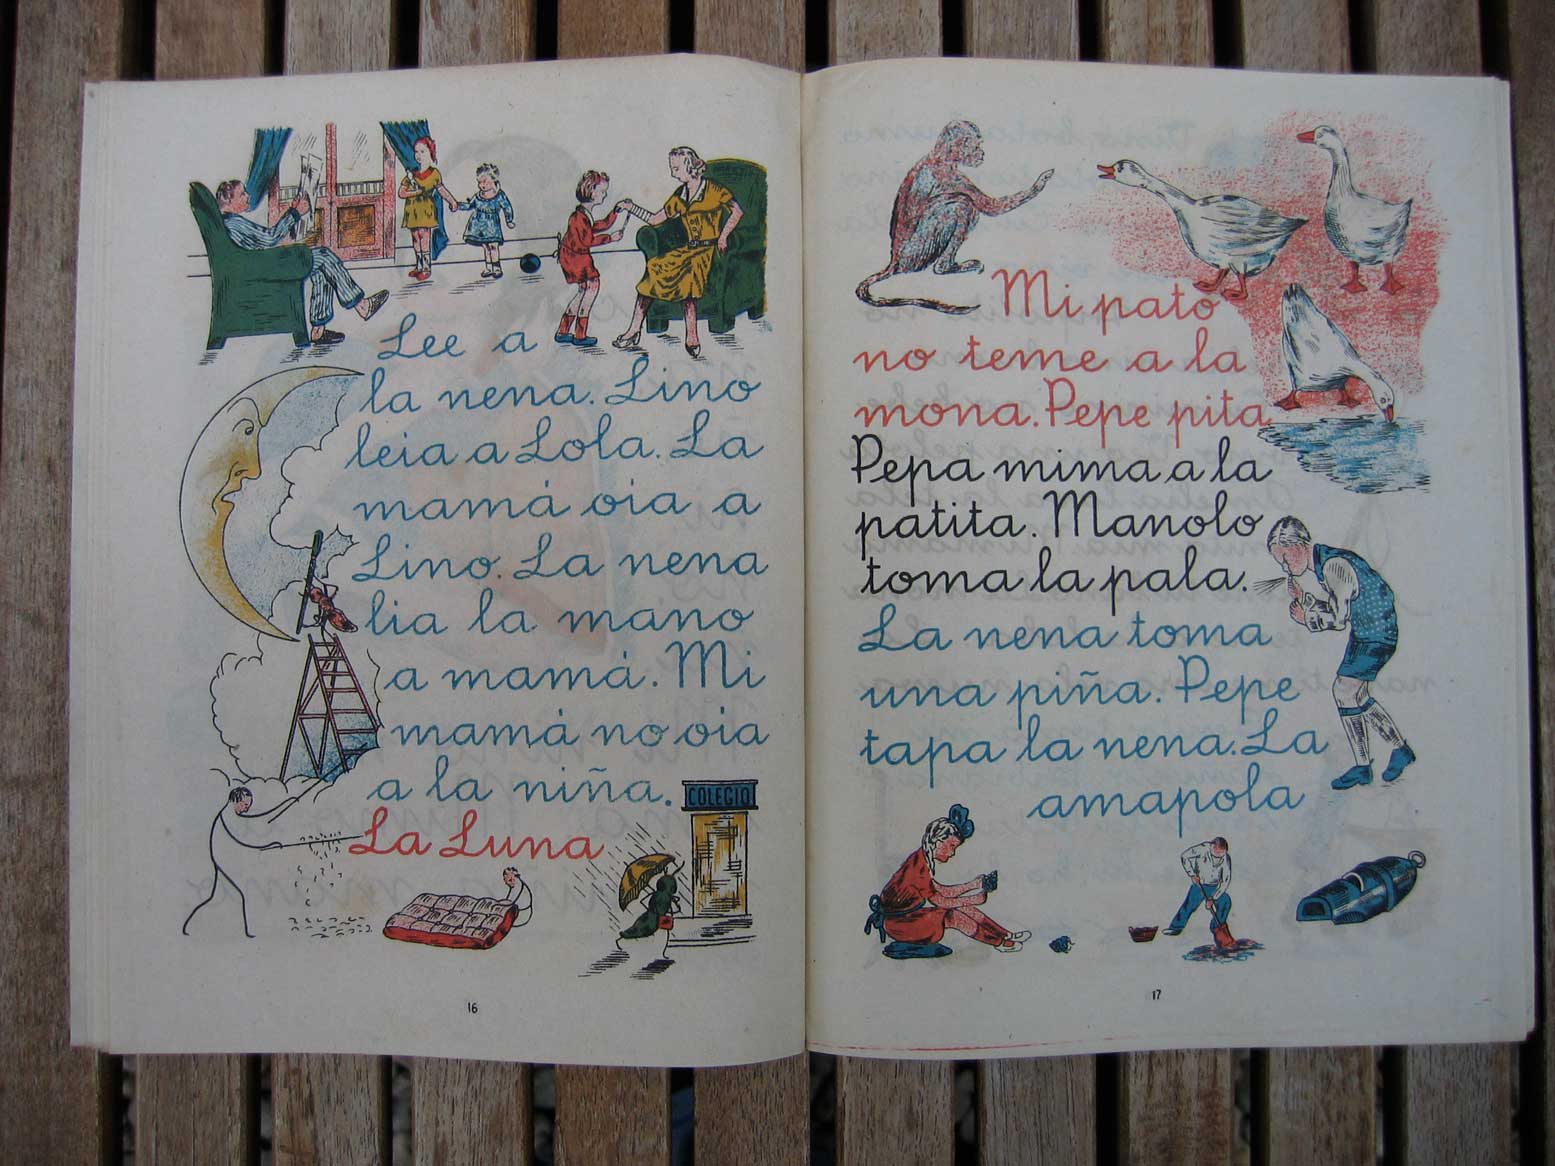 Lee a
la nena. Lino
leia a Lola. La
mamá oia a
Lino. La nena
lia la mano
a mamá. Mi
mamá no oia
a la niña.
COLEGIO
La Luna
16
Mi pato
no teme a la
mona. Pepe pita
Pepa mima a la
patita. Manolo
toma la pala.
La nena toma
una piña. Pepe
tapa la nena. La
amapola
17